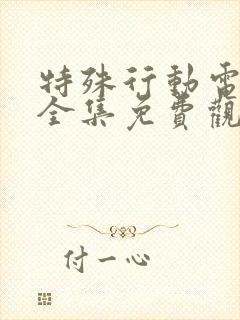 特殊行動電
全集免費觀
付一心